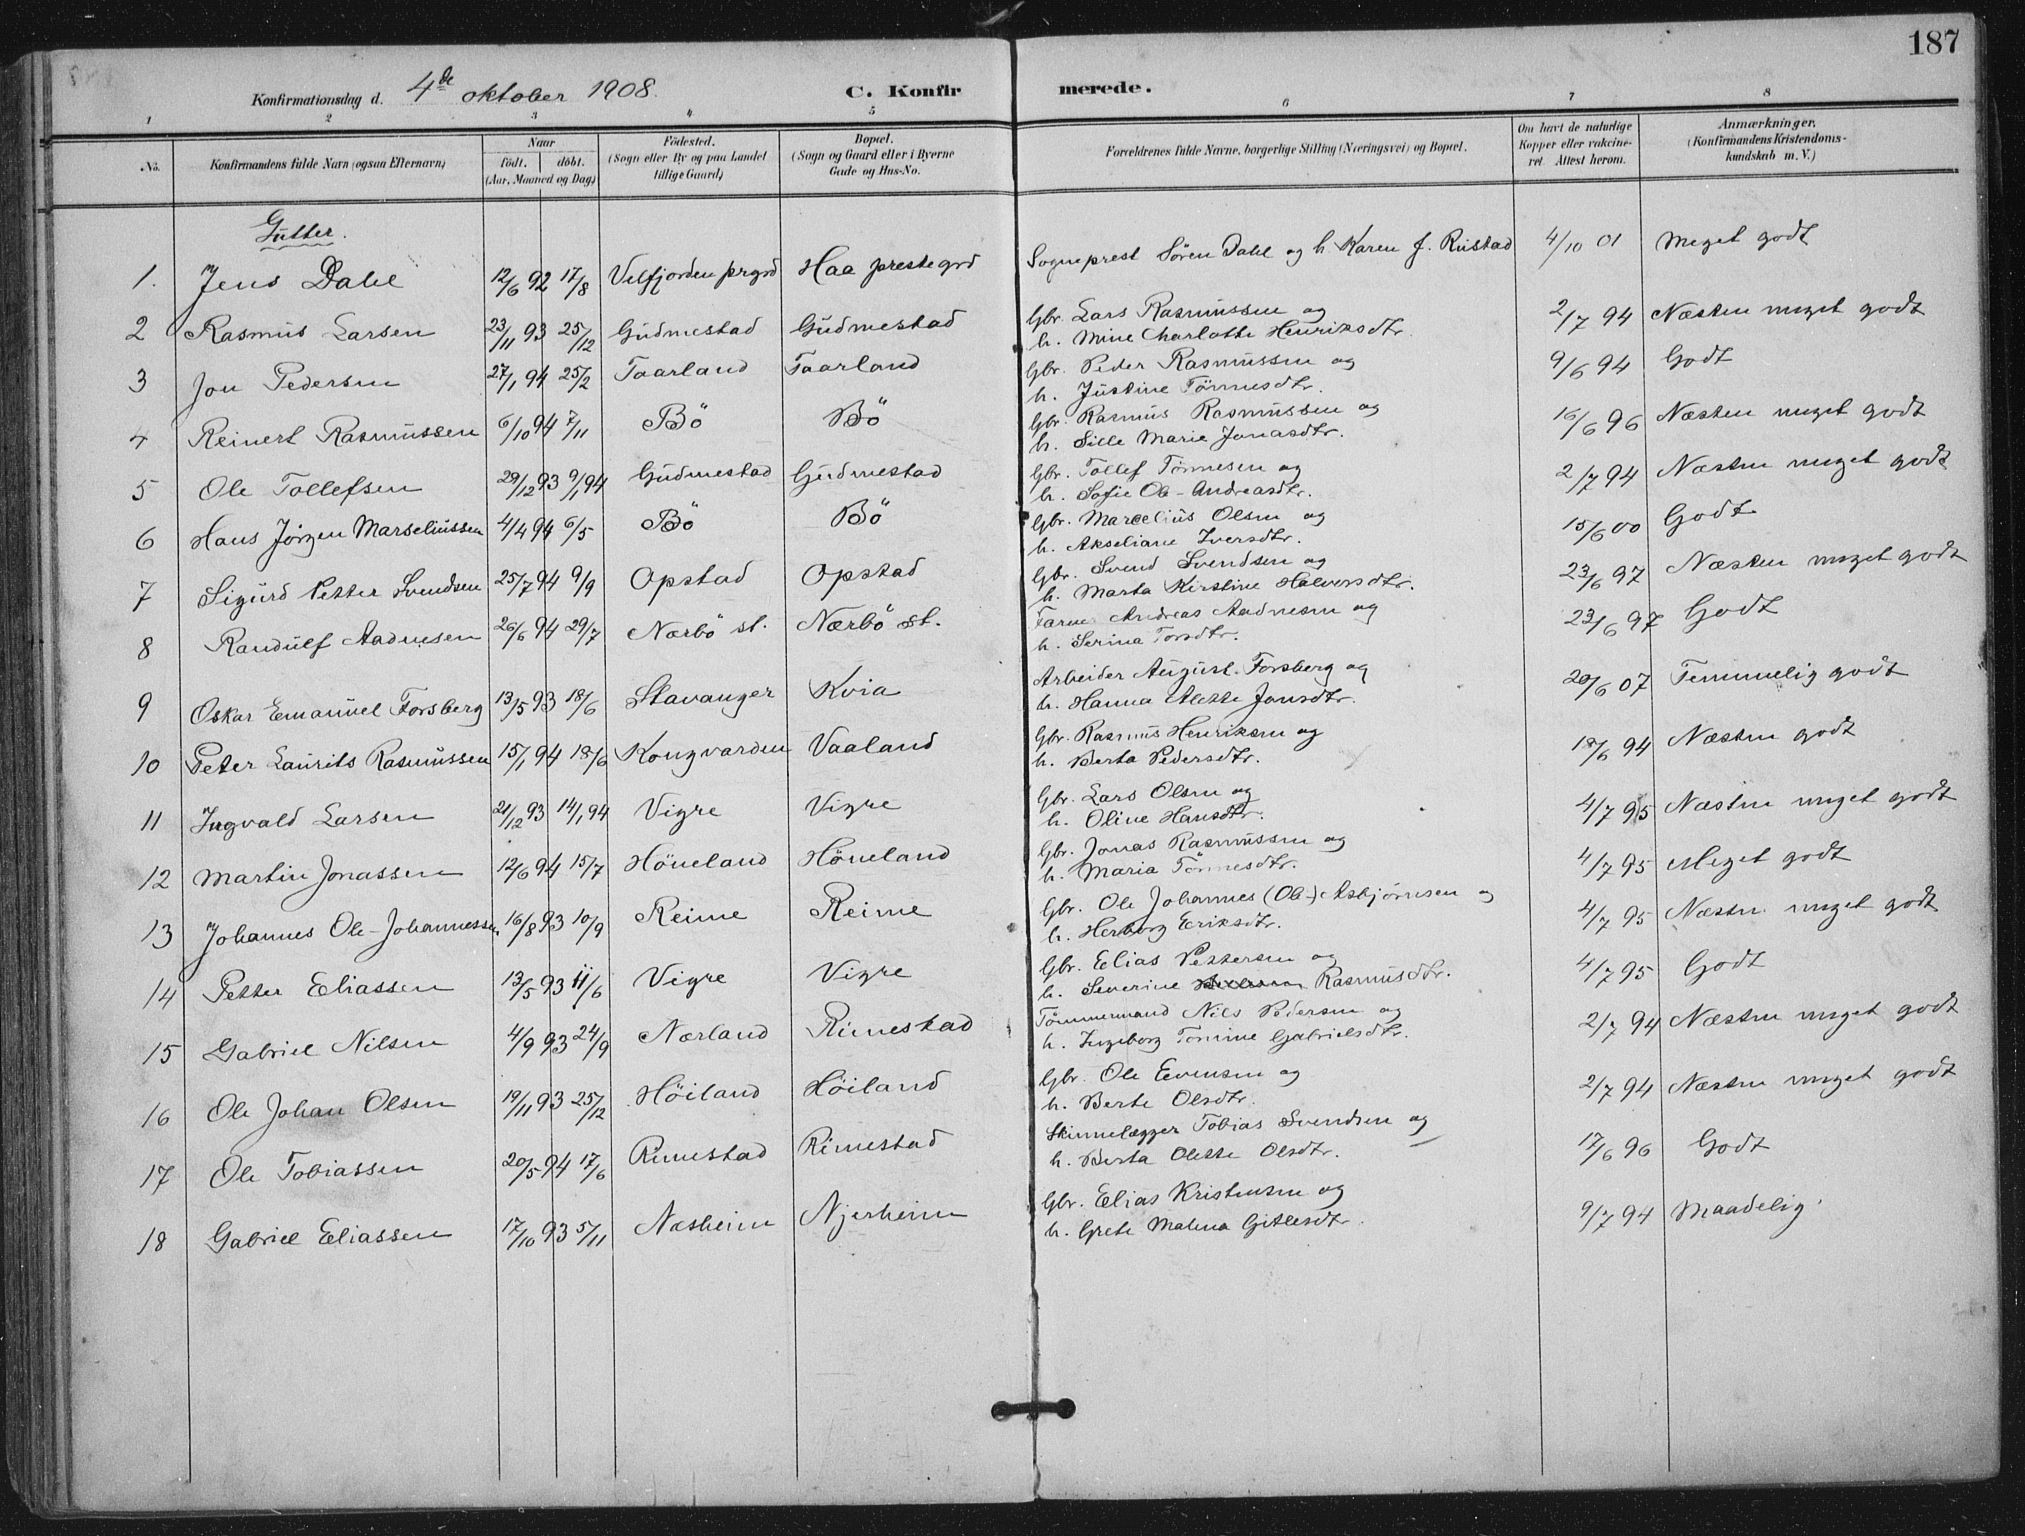 187
Konfirmationsdag d. 4de oktober 1908. C. Konfirmerede.
1 2 3 4 5 6 7 8
No. Konfirmandens fulde Navn (ogsaa Efternavn) Naar födt. döbt. (Aar, Maaned og Dag) Födested. (Sogn eller By og paa Landet tillige Gaard) Bopæl. (Sogn og Gaard eller i Byerne Gade og Hus-No. Forældrenes fulde Navne, borgerlige Stilling (Næringsvei) og Bopæl. Om havt de naturlige Kopper eller vakcineret Attest herom. Anmærkninger. (Konfirmandens Kristendomskundskab m. V.)
Gutter.
1. Jens Dahl 12/6 92 17/8 Velfjorden prgrd Haa prestegrd Sogneprest Sören Dahl og h. Karen f. Rustad 4/10 01 Meget godt
2 Rasmus Larsen 23/11 93 25/12 Gudmestad Gudmestad Gbr. Lars Rasmussen og 2/7 94 Næsten meget godt
h. Mine Charlotte Henriksdtr.
3 Jon Pedersen 27/1 94 25/2 Taarland Taarland Gbr. Peder Rasmussen og 9/6 94 Godt
h. Justine Tönnesdtr.
4 Reinert Rasmussen 6/10 94 7/11 Bö Bö Gbr. Rasmus Rasmussen og 16/6 96 Næsten meget godt
h. Sille Marie Jonasdtr.
5 Ole Tollefsen 29/12 93 9/1 94 Gudmestad Gudmestad Gbr. Tollef Tönnesen og 2/7 94 Næsten meget godt
h. Sofie Ole-Andreasdtr.
6 Hans Jörgen Marseliussen 4/4 94 6/5 Bö Bö Gbr. Marcelius Olsen og 15/6 00 Godt
h. Akseliane Iversdtr.
7 Sigurd Petter Svendsen 25/7 94 9/9 Opstad Opstad Gbr. Svend Svendsen og 23/6 97 Næsten meget godt
h. Marta Kirstine Halvorsdtr.
8 Randulf Aadnesen 26/6 94 29/7 Nærbö st. Nærbö st. Andreas Aadnesen og 23/6 97 Godt
h. Serina Torsdtr.
9 Oskar Emanuel Forsberg 13/5 93 18/6 Stavanger Kvia Arbeider August Forsberg og 20/6 07 Temmelig godt
h. Hanna Alette Jonsdtr.
10 Peter Laurits Rasmussen 15/1 94 18/6 Kongvarden Vaaland Gbr. Rasmus Henriksen og 18/6 94 Næsten godt
h. Berta Pedersdtr.
11 Ingvald Larsen 21/12 93 14/1 94 Vigre Vigre Gbr. Lars Olsen og 4/7 95 Næsten meget godt
h. Oline Hansdtr.
12 Martin Jonassen 12/6 94 15/7 Höneland Höneland Gbr. Jonas Rasmussen og 4/7 95 Meget godt
h. Maria Tönnesdtr.
13 Johannes Ole-Johannessen 16/8 93 10/9 Reime Reime Gbr. Ole Johannes (Ole-) Asbjörnsen og 4/7 95 Næsten meget godt
h. Herborg Eriksdtr.
14 Petter Eliassen 13/5 93 11/6 Vigre Vigre Gbr. Elias Pettersen og 4/7 95 Godt
h. Severine Rasmusdtr.
15 Gabriel Nilsen 4/9 93 24/9 Nærland Rimestad Tömmermand Nils Pedersen og 2/7 94 Næsten meget godt
h. Ingeborg Tomine Gabrielsdtr.
16 Ole Johan Olsen 19/11 93 25/12 Höiland Höiland Gbr. Ole Evensen og 2/7 94 Næsten meget godt
h. Berte Olsdtr.
17 Ole Tobiassen 20/5 94 17/6 Rimestad Rimestad Skinnelægger Tobias Svendsen og 17/6 96 Godt
h. Berta Olette Olsdtr.
18 Gabriel Eliassen 17/10 93 5/11 Næsheim Njerheim Gbr. Elias Kristensen og 9/7 94 Maadelig
h. Grete Malena Gitlesdtr.